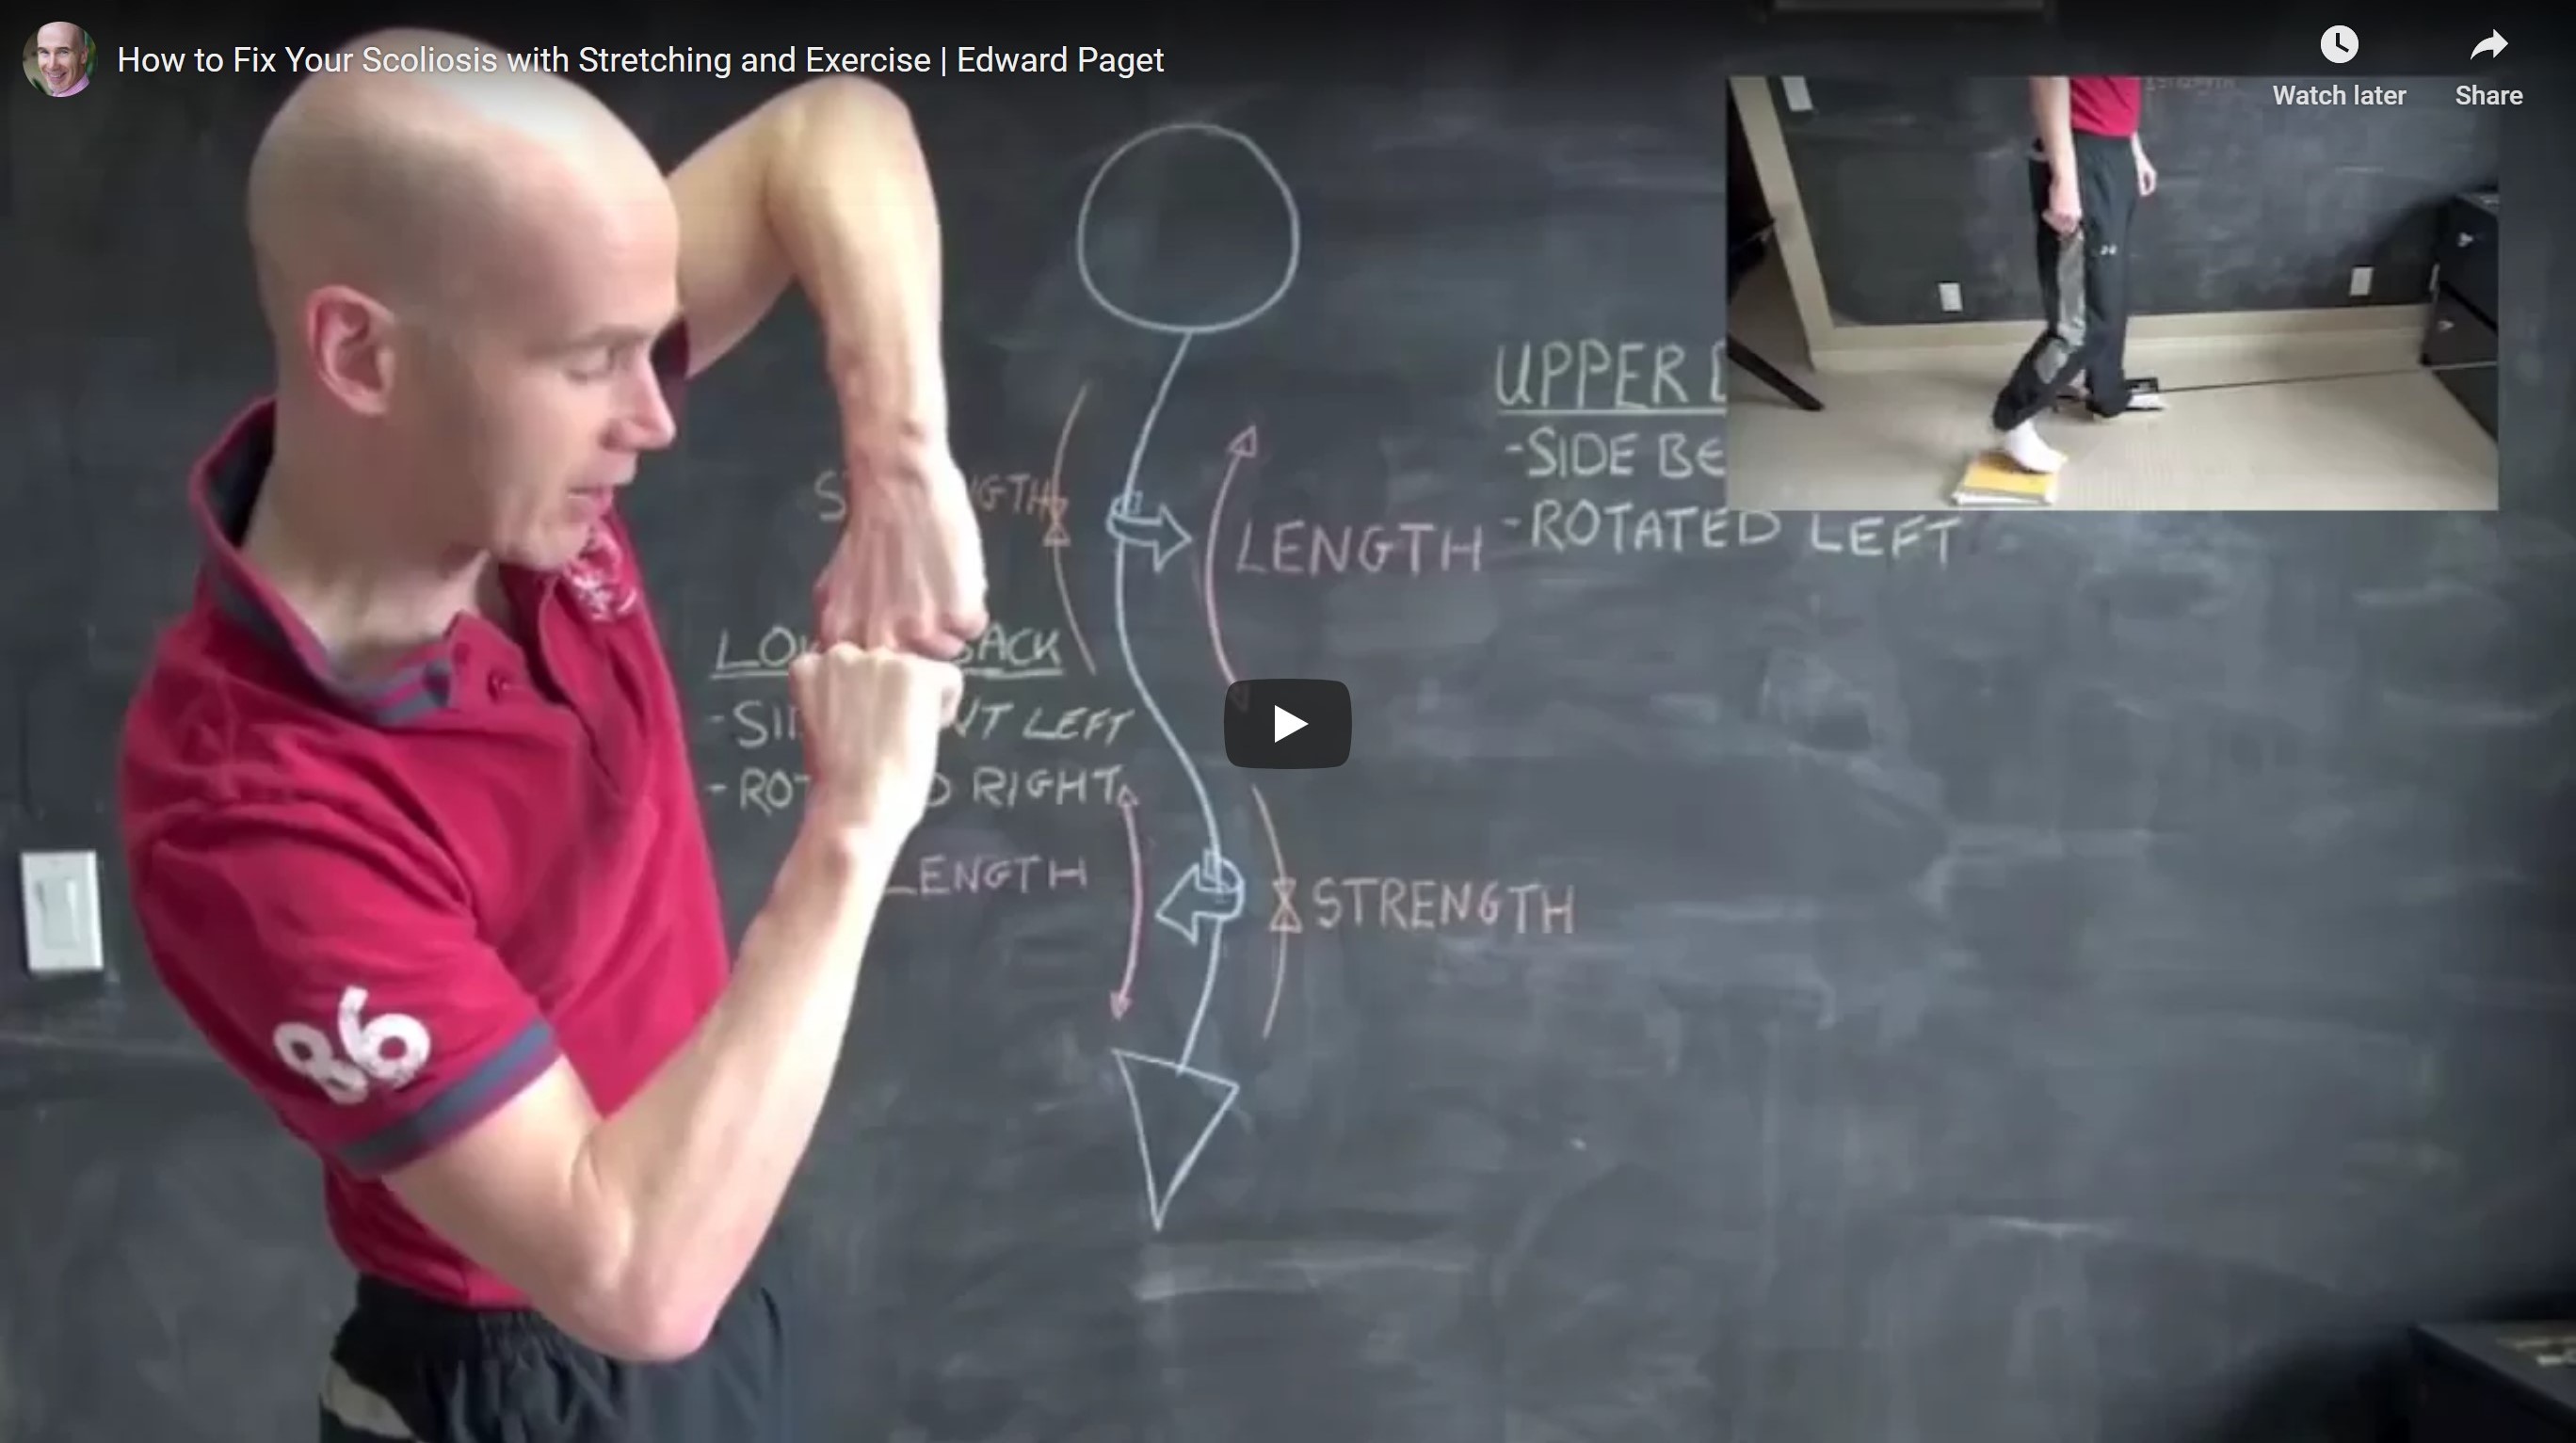 How to Fix Your Scoliosis with Stretching and Exercise | Edward Paget
Watch later
Share
UPPER
-SIDE BE
-ROTATED LEFT
LENGTH
BACK
LEFT
RIGHT
LENGTH
STRENGTH
86